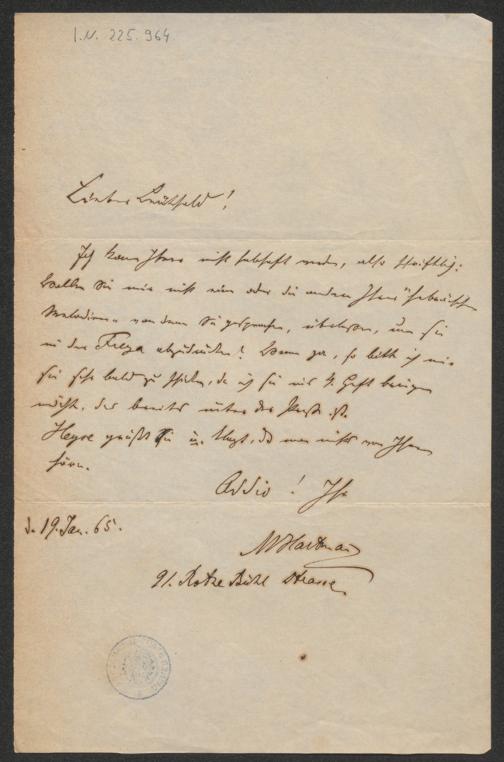 I.N. 225.964
Lieber !
Ich kann Ihrer nicht habhaft werden, also schriftlich:
Wollen Sie mir nicht eine oder die andere Ihrer "Hebräischen
Melodien" von denen Sie gesprochen, überlassen, um sie
in der Freya abzudrucken? Wenn ja, so bitte ich mir
sie sehr bald zu schicken, da ich sie ins Heft bringen
möchte, das bereits unter der Presse ist.
Heyse grüßt Sie u. klagt, daß man nichts von Ihnen
höre.
Addio! Ihr
d. 19. Jan. 65.
MHartmann
91. Rothe Bühl Strasse